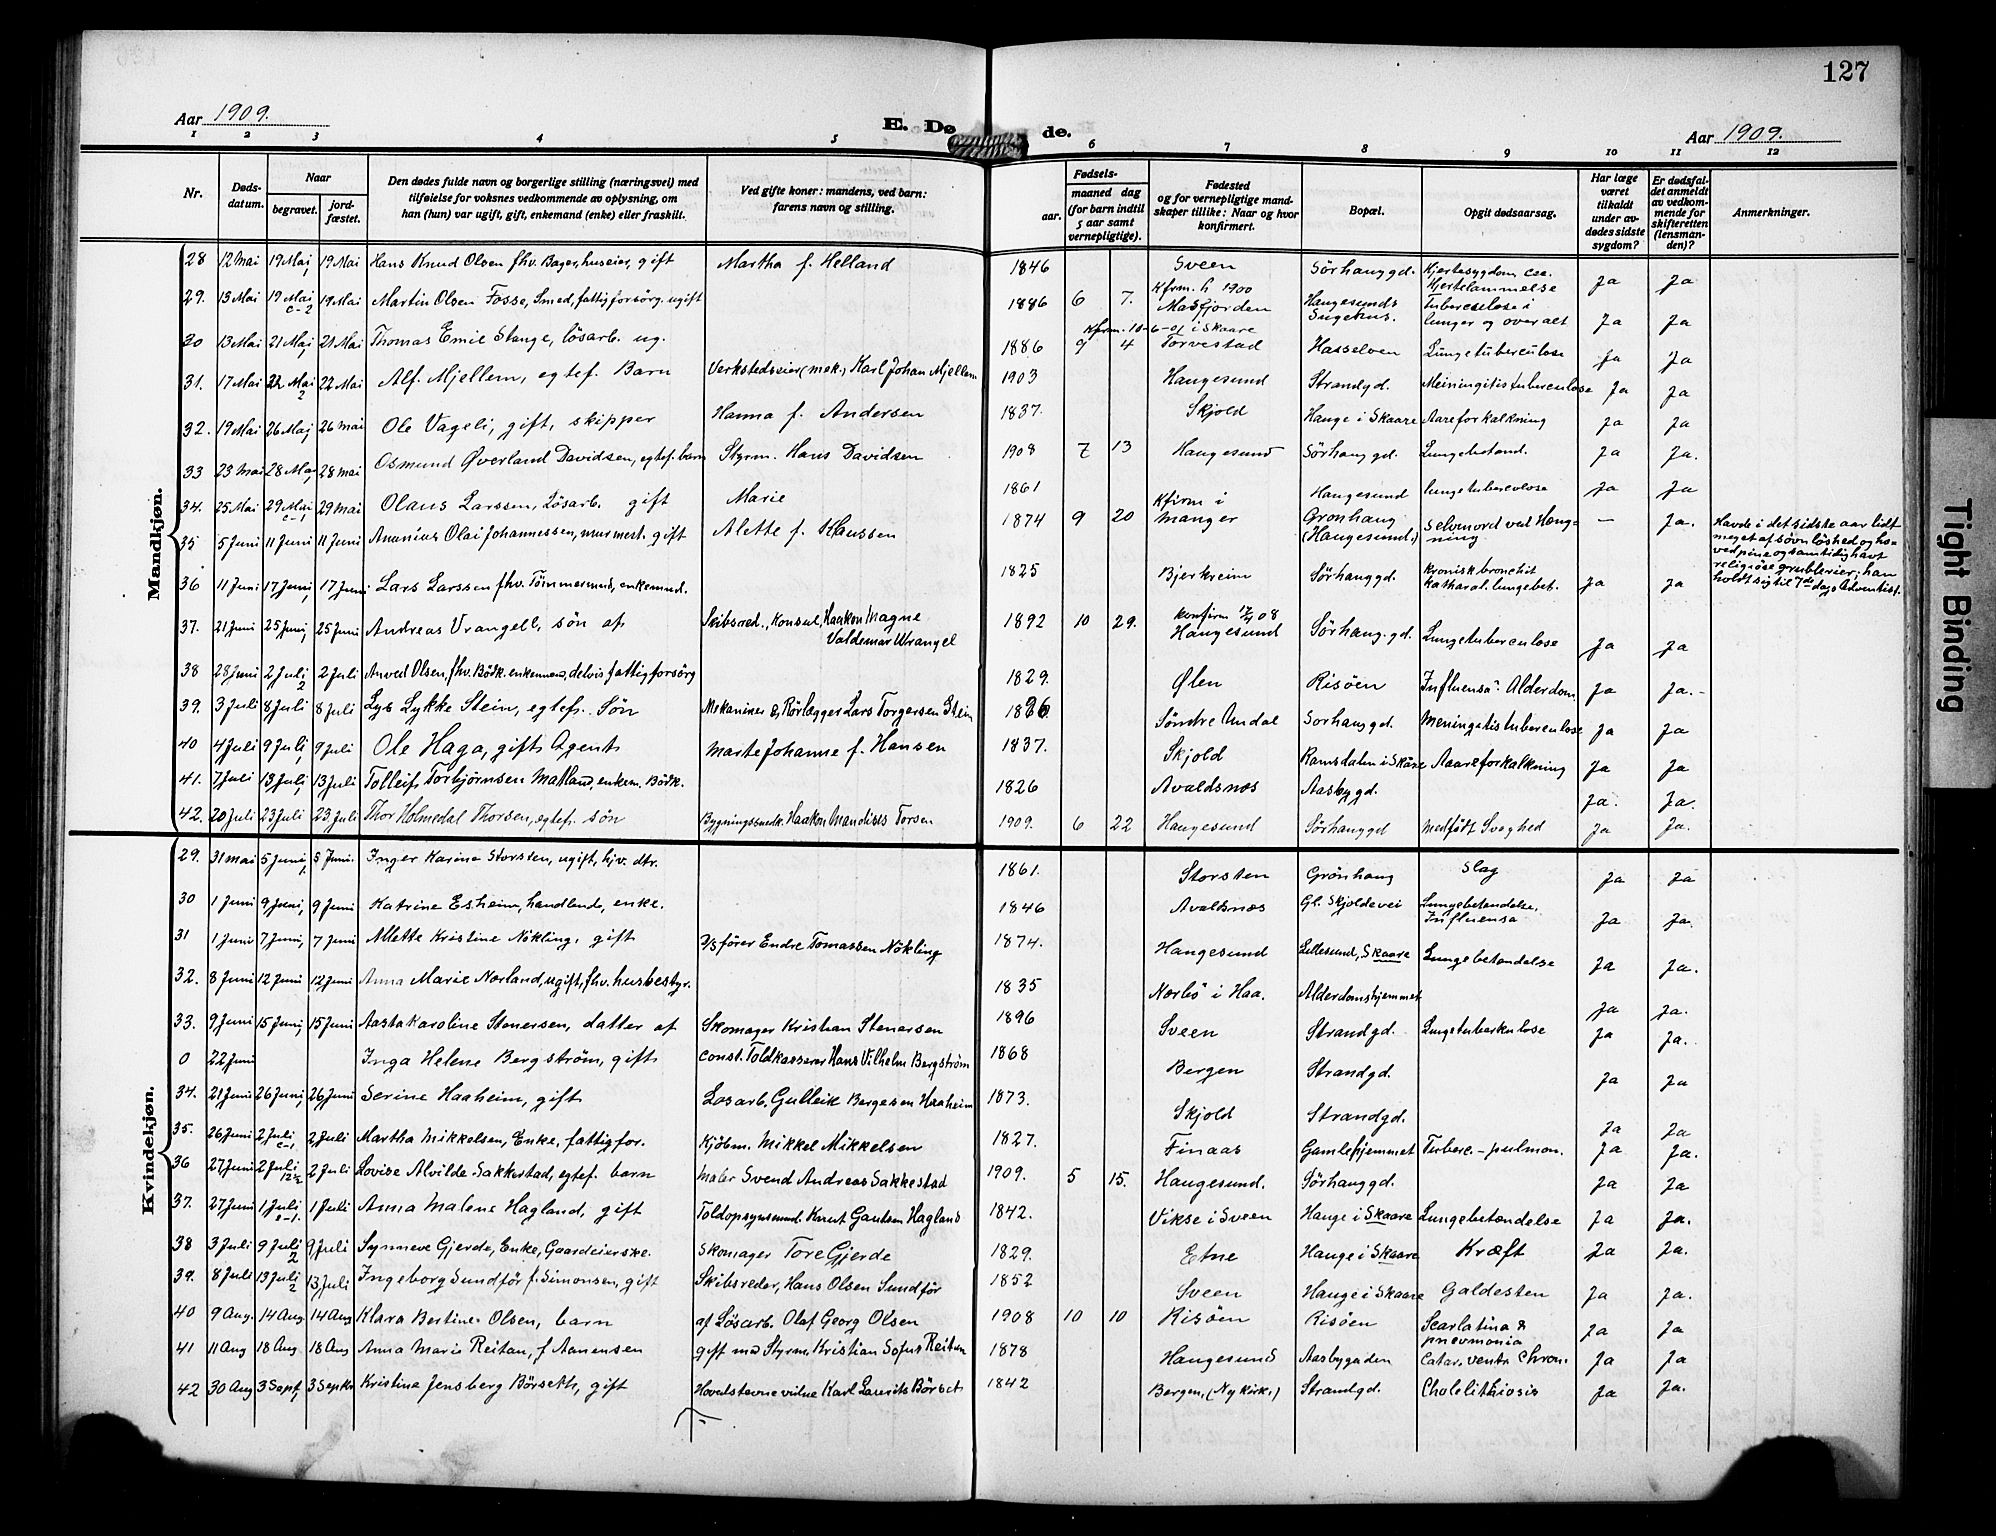 127
Aar 1909.
E. Dø de.
Aar 1909.
1 2 3 4 5 6 7 8 9 10 11 12
Nr.
Døds-datum.
Naar
begravet.
jord-fæstet.
Den dødes fulde navn og borgerlige stilling (næringsvei) med
tilføielse for voksnes vedkommende av oplysning, om
han (hun) var ugift, gift, enkemand (enke) eller fraskilt.
Ved gifte koner: mandens, ved barn:
farens navn og stilling.
Fødsels-
aar.
maaned dag
(for barn indtil
5 aar samt
vernepligtige).
Fødested
og for vernepligtige mand-
skaper tillike: Naar og hvor
konfirmert.
Bopæl.
Opgit dødsaarsag.
Har læge
været
tilkaldt
under av-
dødes sidste
sygdom?
Er dødsfal-
det anmeldt
av vedkom-
mende for
skifteretten
(lensman-
den)?
Anmerkninger.
Mandkjøn.
28 12 Mai 19 Mai, 19 Mai Hans Knud Olsen fhv. Bager, huseier, gift Martha f. Helland 1846 Sveen Sörhauggd. Hjertelammelse Ja Ja
29. 13 Mai 19 Mai 19 Mai Martin Olsen Fosse, Smed, fattigforsörg. ugift 1886 6 7. Kfirm. h 1900 Masfjorden Haugesunds Sygehus. Tuberculose i lunger og overalt Ja Ja
30 13 Mai 21 Mai, 21 Mai Thomas Emil Stange, lösarb. ug. 1886 9 4 Kfirm. 10-6-01 i Skaare Torvestad Hasseloen Lungetuberculose Ja Ja
31. 17 Mai 22 Mai 2 22 Mai Alf Mjellem, egtef. Barn Verkstedseier (mek.) Karl Johan Mjellem 1903 Haugesund Strandgd. Meiningitis tuberculose Ja Ja
32. 19 Mai 26 Maj 26 mai Ole Vageli, gift, skipper Hanna f. Andersen 1837. Skjold Hauge i Skaare Aareforkalkning Ja Ja
33 23 Mai 28 Mai 28 mai Osmund Øverland Davidsen, egtef. barn Styrm. Hans Davidsen 1908 7 13 Haugesund Sörhauggd. Lungebetænd. Ja Ja.
34. 25 Mai 29 Mai 29 mai Olaus Larssen, Lösarb. gift Marie 1861 Haugesund lungetuberculose Ja Ja
35 5 Juni 11 Juni 11 Juni Ananias Olai Johannessen, murmest. gift Alette f. Klaussen 1874 9 20 Kfirm i Manger Grønhaug (Haugesund.) Selvmord ved Hæng-ning — Ja. Havde i det sidste aar lidt
meget af søvnløshed og ho-
vedpine og samtidig havt
religiøse grublerier; han
holdt sig til 7de dags Adventist.
36 11 Juni 17 Juni, 17 Juni Lars Larssen fhv. Tømmermand, enkemand. 1825 Bjerkreim Sørhauggd. kronisk bronchit Kataral. lungebet. Ja Ja
37. 21 Juni 25 Juni, 25 Juni Andreas Vrangell, søn af Skibsred., Konsul, Haakon Magne Valdemar Wrangel 1892 10 29. konfirm 08 Haugesund Sörhaug.gd. Lungetuberculose Ja Ja
38 28 Juni 2 Juli 2 2 Juli Anved Olsen, fhv. Bødk. enkemand, delvis fattigforsörg 1829. Ølen Risöen Influensa. Alderdom Ja Ja.-
39. 3 Juli 8 Juli 8 Juli Lykke Stein, egtef. Søn Mekaniner & Rörlægger Lars Torgersen Stein Söndre Undal Sorhauggd. Meningitis tuberculose Ja Ja
40 4 Juli 9 Juli, 9 Juli Ole Haga, gift, Agent Marte Johanne f. Hansen 1837. Skjold Ramsdalen i Skåre Aareforkalkning Ja Ja
41. 7 Juli 13 Juli, 13 Juli Tolleif Torbjörnsen Matland, enkem. Bödk. 1826 Avaldsnæs Aasbygd. Ja. Ja.
42. 20 Juli 23 Juli 23 Juli Thor Holmedal Thorsen, egtef. søn Bygningssnedk. Haakon Mandius Torsen 1909. 6 22 Haugesund Sörhauggd medfødt Svaghed Ja Ja.
Kvindekjøn.
29. 31 mai 5 Juni, 5 Juni. Inger Karine Storsten, ugift, hjv. dtr. 1861. Storsten Grönhaug Slag Ja Ja
30 1 Juni 9 Juni, 9 Juni Katrine Esheim, handlende, enke. 1846 Avaldsnæs Gl. Skjoldevei Lungebetændelse, Influensa Ja Ja.
31 1 Juni 7 Juni, 7 Juni Allette Kristine Nökling, gift D/S fører Endre Tomassen Nökling 1874. Haugesund Lillesund, Skaare Lungebetændelse Ja Ja.
32. 8 Juni 12 Juni 12 Juni Anna Marie Norland, ugift, fhv. husbestyr. 1835 Nærbö i Haa. Alderdomshjemmet Ja Ja.
33. 9 Juni 15 Juni, 15 Juni Aasta Karoline Stenersen, datter af Skomager Kristian Stenersen 1896 Sveen Strandgd. Lungetuberkulose Ja Ja.
0 22 Juni Inga Helene Bergström, gift const. Toldkasserer Hans Vilhelm Bergström 1868 Bergen Strandgd. Ja Ja
34. 21 Juni 26 Juni, 26 Juni Serine Haaheim, gift Løsarb. Gulleik Bergesen Haaheim 1873. Skjold Strandgd. Ja Ja
35. 26 Juni 2 Juli 2 Juli Martha Mikkelsen, Enke, fattigfor. Kjöbm. Mikkel Mikkelsen 1827. Finaas Gamlehjemmet Tuberc. - pulmon. Ja Ja.
36 27 Juni 2 Juli 2 Juli Lovise Alvilde Sakkestad, egtef. barn Maler Svend Andreas Sakkestad 1909. 5 15. Haugesund. Sörhauggd. Ja Ja
37. 27 Juni 1 Juli 1 Juli Anna Malene Hagland, gift Toldopsynsmand. Knut Gautsen Hagland 1842. Vikse i Sveen Hauge i Skaare Lungebetændelse Ja Ja.
38 3 Juli 9 Juli 2 9 Juli Synneve Gjerde, Enke, Gaardeierske. Skomager Tore Gjerde 1829. Etne Hauge i Skaare Kræft Ja Ja.
39. 8 Juli 13 Juli 2 13 Juli Ingeborg Sundför f. Simonsen, gift Skibsreder, Hans Olsen Sundför 1852 Sveen Hauge i Skaare Galdesten Ja Ja.
40 9 Aug. 14 Aug 14 Aug Klara Bertine Olsen, barn af Lösarb. Olaf Georg Olsen 1908 10 10 Risöen Risöen Scarlatina & pneumonia Ja Ja
41 11 Aug 18 Aug 18 Aug Anna Marie Reitan, f Aanensen gift md Styrm. Kristian Sofus Reitan 1878 Haugesund Aasbygaden Catar. ventr. Chron. Ja Ja
42 30 Aug 3 Sept, 3 Septbr Kristine Jensberg Börseth, gift Hovedstevnevidne Karl Laurits Börset 1842 Bergen, (Nykirk.) Strandgd. Cholelithiosis Ja Ja.
Tight Binding